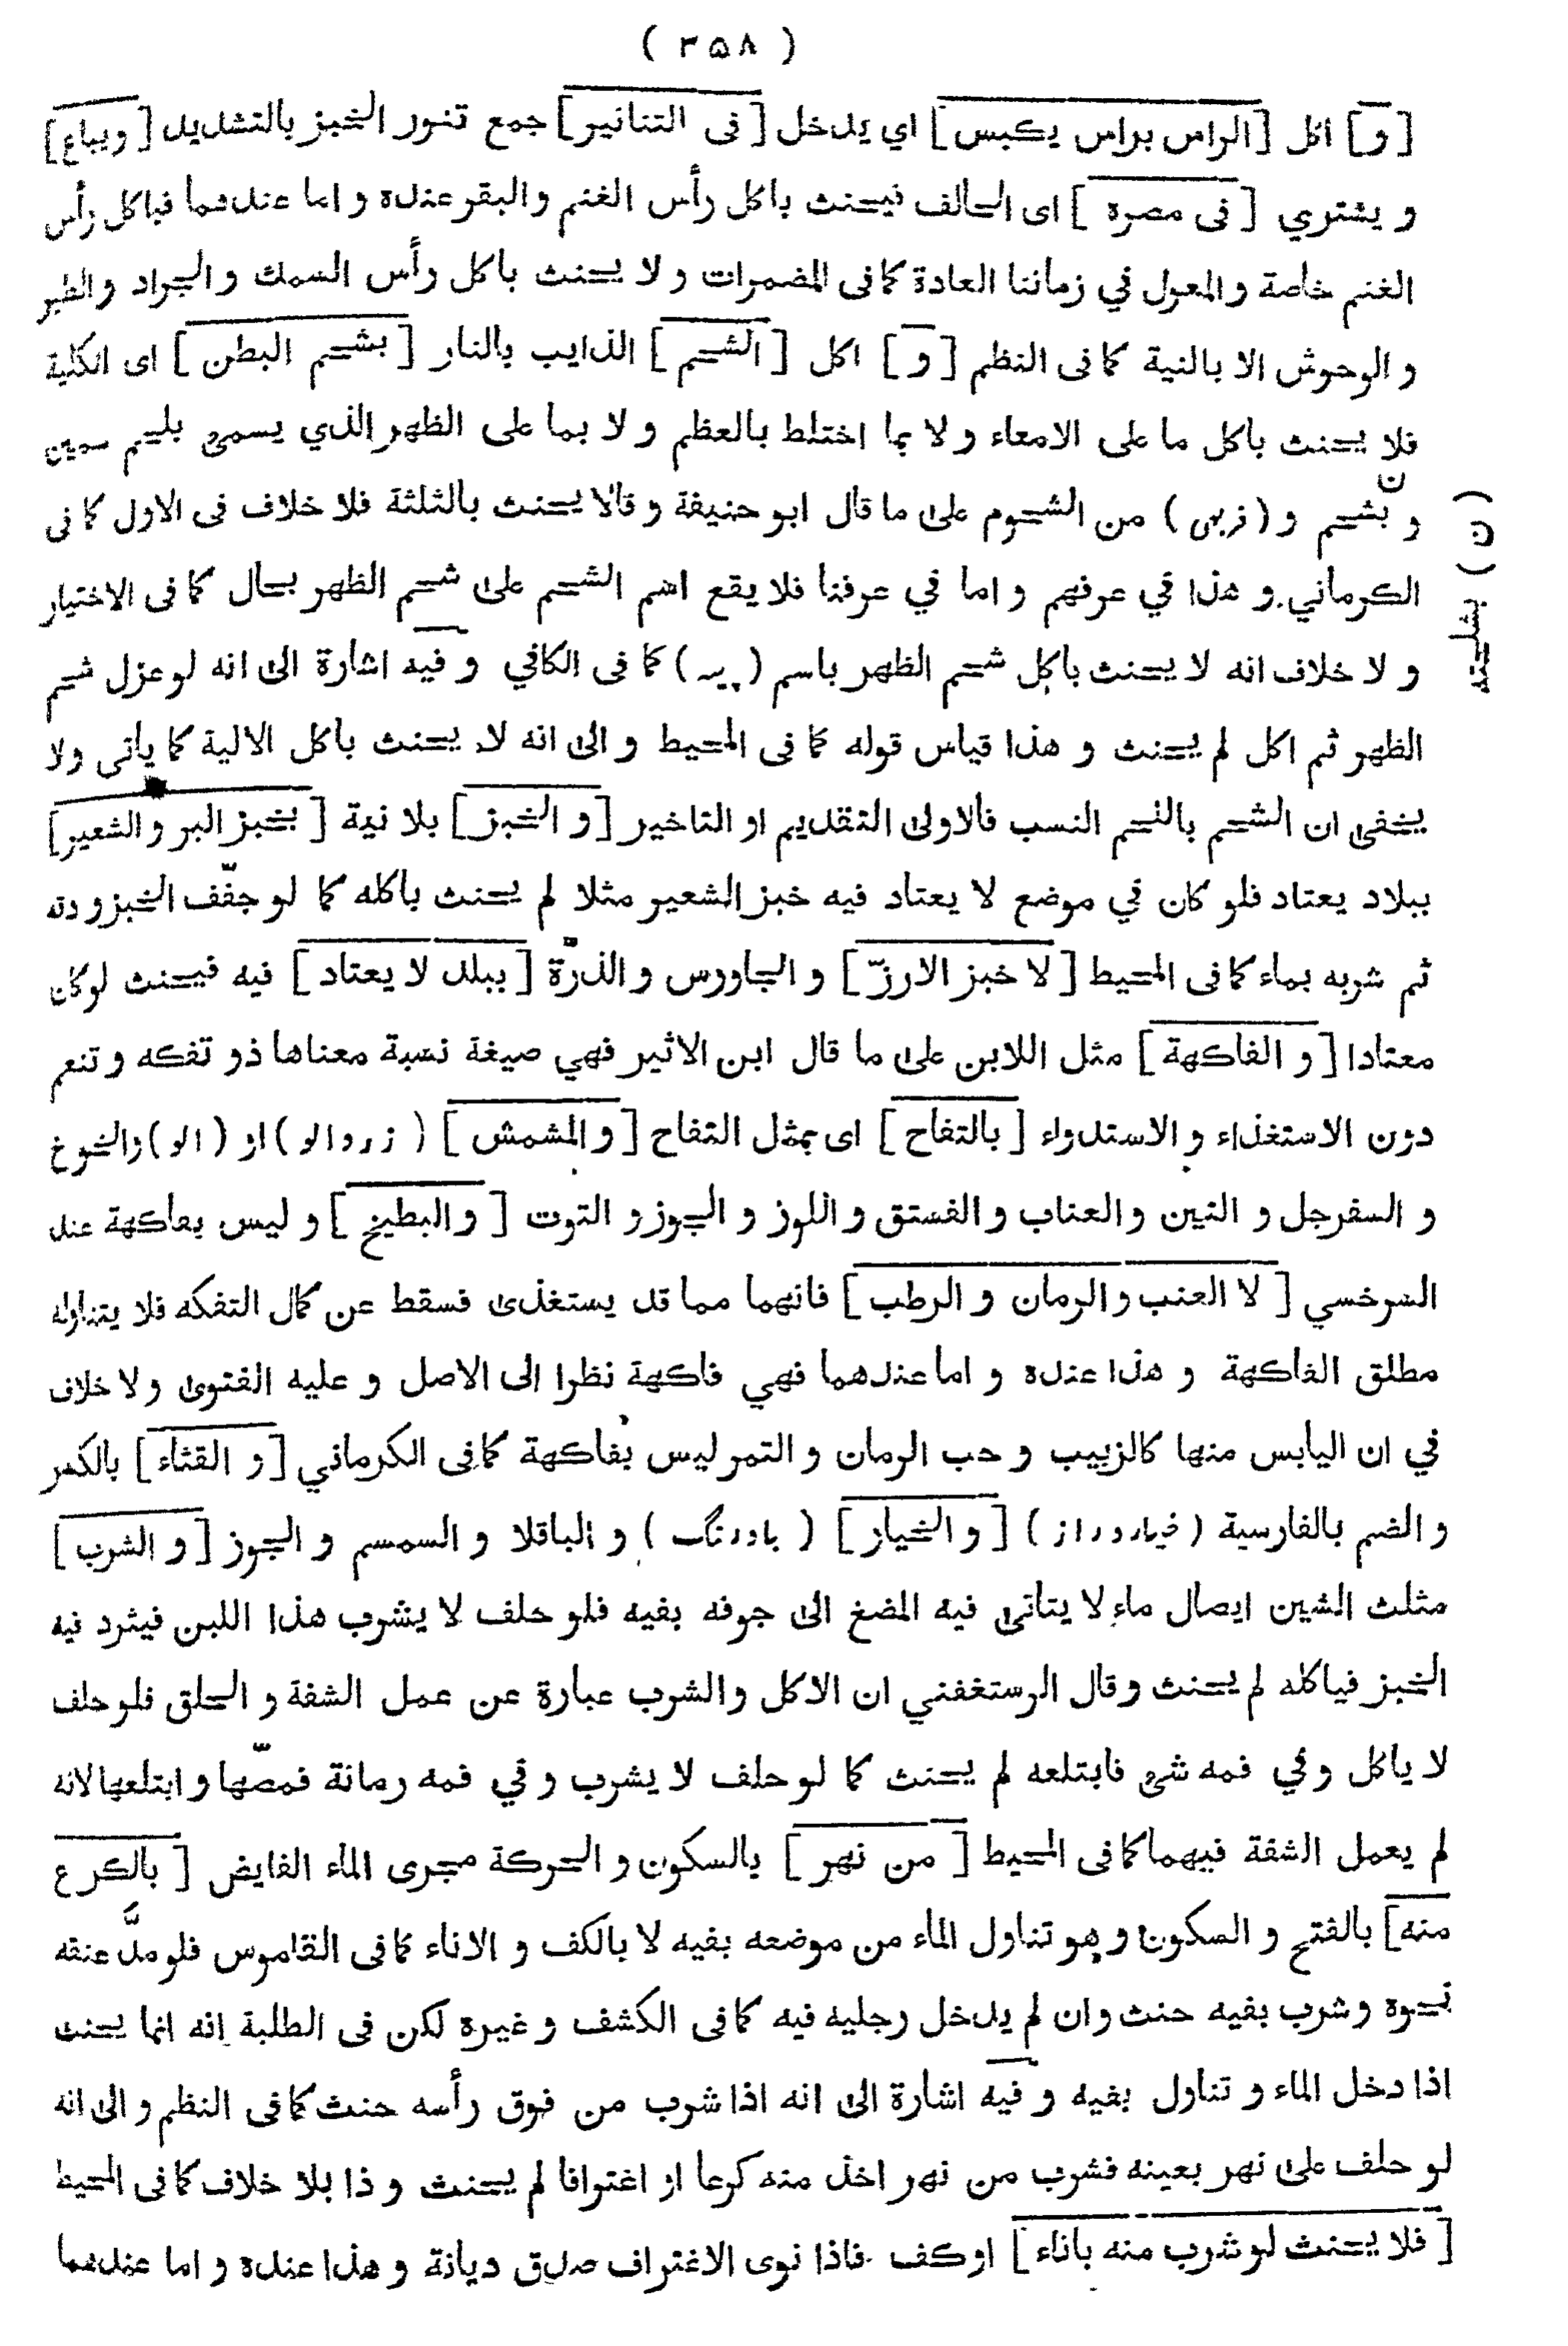 ( ٣٥٨ )
[و] اكل [الراس براس يكبس] اي يدخل [فى التنانير] جمع تنور الخبز بالتشديد [ويباع]
و يشتري [فى مصره] اى الحالف فيحنث باكل رأس الغنم والبقر عنده و اما عندهما فباكل رأس
الغنم خاصة والمعول في زماننا العادة كما فى المضمرات و لا يحنث باكل رأس السمك والجراد والطير
و الوحوش الا بالنية كما فى النظم [و] اكل [الشحم] الذايب بالنار [بشحم البطن] اى الكلية
فلا يحنث باكل ما على الامعاء و لا بما اختلط بالعظم و لا بما على الظهر الذي يسمى بلحم سمين
و بشحم و (فربهى) من الشحوم على ما قال ابو حنيفة و قالا يحنث بالثلثة فلا خلاف فى الاول كما فى
الكرماني و هذا في عرفهم و اما في عرفنا فلا يقع اسم الشحم على شحم الظهر بحال كما فى الاختيار
و لا خلاف انه لا يحنث باكل شحم الظهر باسم (پيه) كما فى الكافي و فيه اشارة الى انه لو عزل شحم
الظهر ثم اكل لم يحنث و هذا قياس قوله كما فى المحيط و الى انه لا يحنث باكل الالية كما ياتى ولا
يخفى ان الشحم باللحم انسب فالاولى التقديم او التاخير [و الخبز] بلا نية [بخبز البر والشعير]
ببلاد يعتاد فلو كان في موضع لا يعتاد فيه خبز الشعير مثلا لم يحنث باكله كما لو جفّف الخبز ودقه
ثم شربه بماء كما فى المحيط [لا خبز الارزّ] و الجاورس و الذرّة [ببلد لا يعتاد] فيه فيحنث لوكان
معتادا [و الفاكهة] مثل اللابن على ما قال ابن الاثير فهي صيغة نسبة معناها ذو تفكه و تنعم
دون الاستغذاء و الاستدواء [بالتفاح] اى بمثل التفاح [و المشمش] (زردالو) او (الو) والخوخ
و السفرجل و التين و العناب و الفستق و اللوز و الجوز و التوت [و البطيخ] و ليس بفاكهة عند
السرخسي [لا العنب والرمان و الرطب] فانهما مما قد يستغذى فسقط عن كمال التفكه فلا يتناوله
مطلق الفاكهة و هذا عنده و اما عندهما فهي فاكهة نظرا الى الاصل و عليه الفتوى و لا خلاف
في ان اليابس منها كالزبيب و حب الرمان و التمر ليس بفاكهة كما فى الكرماني [و القثاء] بالكسر
و الضم بالفارسية (خيار دراز) [و الخيار] (بادرنگ) و الباقلا و السمسم و الجوز [و الشرب]
مثلث الشين ايصال ماء لا يتاتى فيه المضغ الى جوفه بفيه فلو حلف لا يشرب هذا اللبن فيثرد فيه
الخبز فياكله لم يحنث و قال الرستغفني ان الاكل والشرب عبارة عن عمل الشفة و الحلق فلو حلف
لا ياكل وفي فمه شئ فابتلعه لم يحنث كما لو حلف لا يشرب و في فمه رمانة فمصّها و ابتلعها لانه
لم يعمل الشفة فيهما كما فى المحيط [من نهر] بالسكون و الحركة مجرى الماء الفايض [بالكرع
منه] بالفتح و السكون و هو تناول الماء من موضعه بفيه لا بالكف و الاناء كما فى القاموس فلو مدّ عنقه
نحوه و شرب بفيه حنث وان لم يدخل رجليه فيه كما فى الكشف و غيره لكن فى الطلبة انه انما يحنث
اذا دخل الماء و تناول بفيه و فيه اشارة الى انه اذا شرب من فوق رأسه حنث كما فى النظم و الى انه
لو حلف على نهر بعينه فشرب من نهر اخذ منه كرعا او اغترافا لم يحنث و ذا بلا خلاف كما فى المحيط
[فلا يحنث لو شرب منه باناء] او كف فاذا نوى الاغتراف صدق ديانة و هذا عنده و اما عندهما
(ن) بشحمه